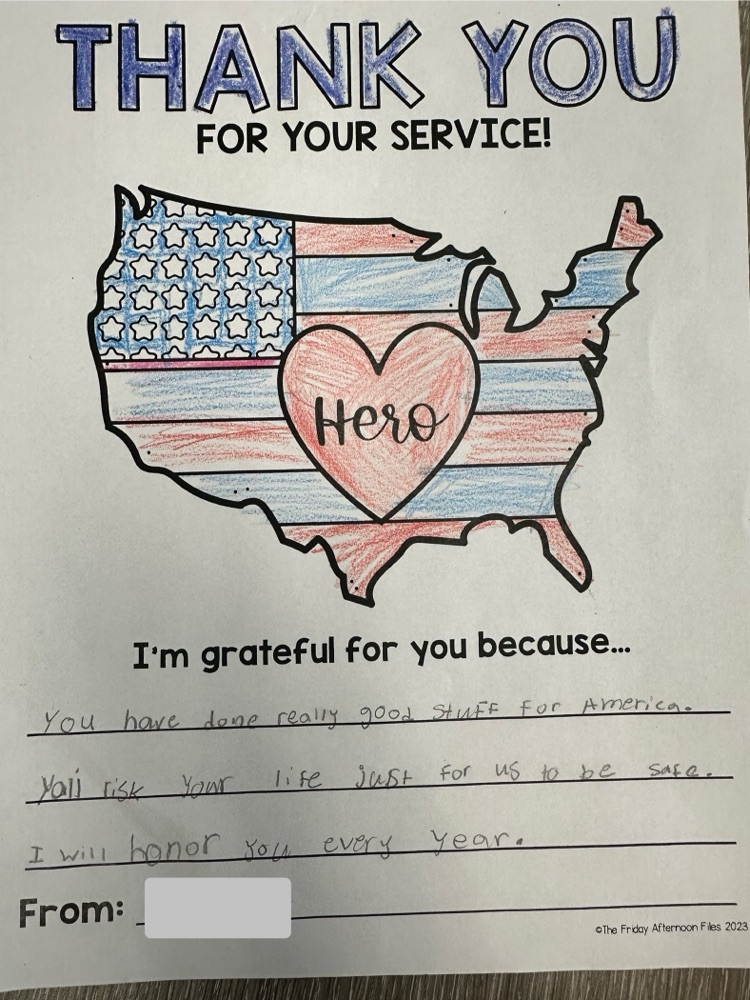 THANK YOU
FOR YOUR SERVICE!
Hero
I'm grateful for you because...
You have done really good stuff for America.
Yall risk your life just for us to be safe.
I will honor you every year.
From:
©The Friday Afternoon Files 2023